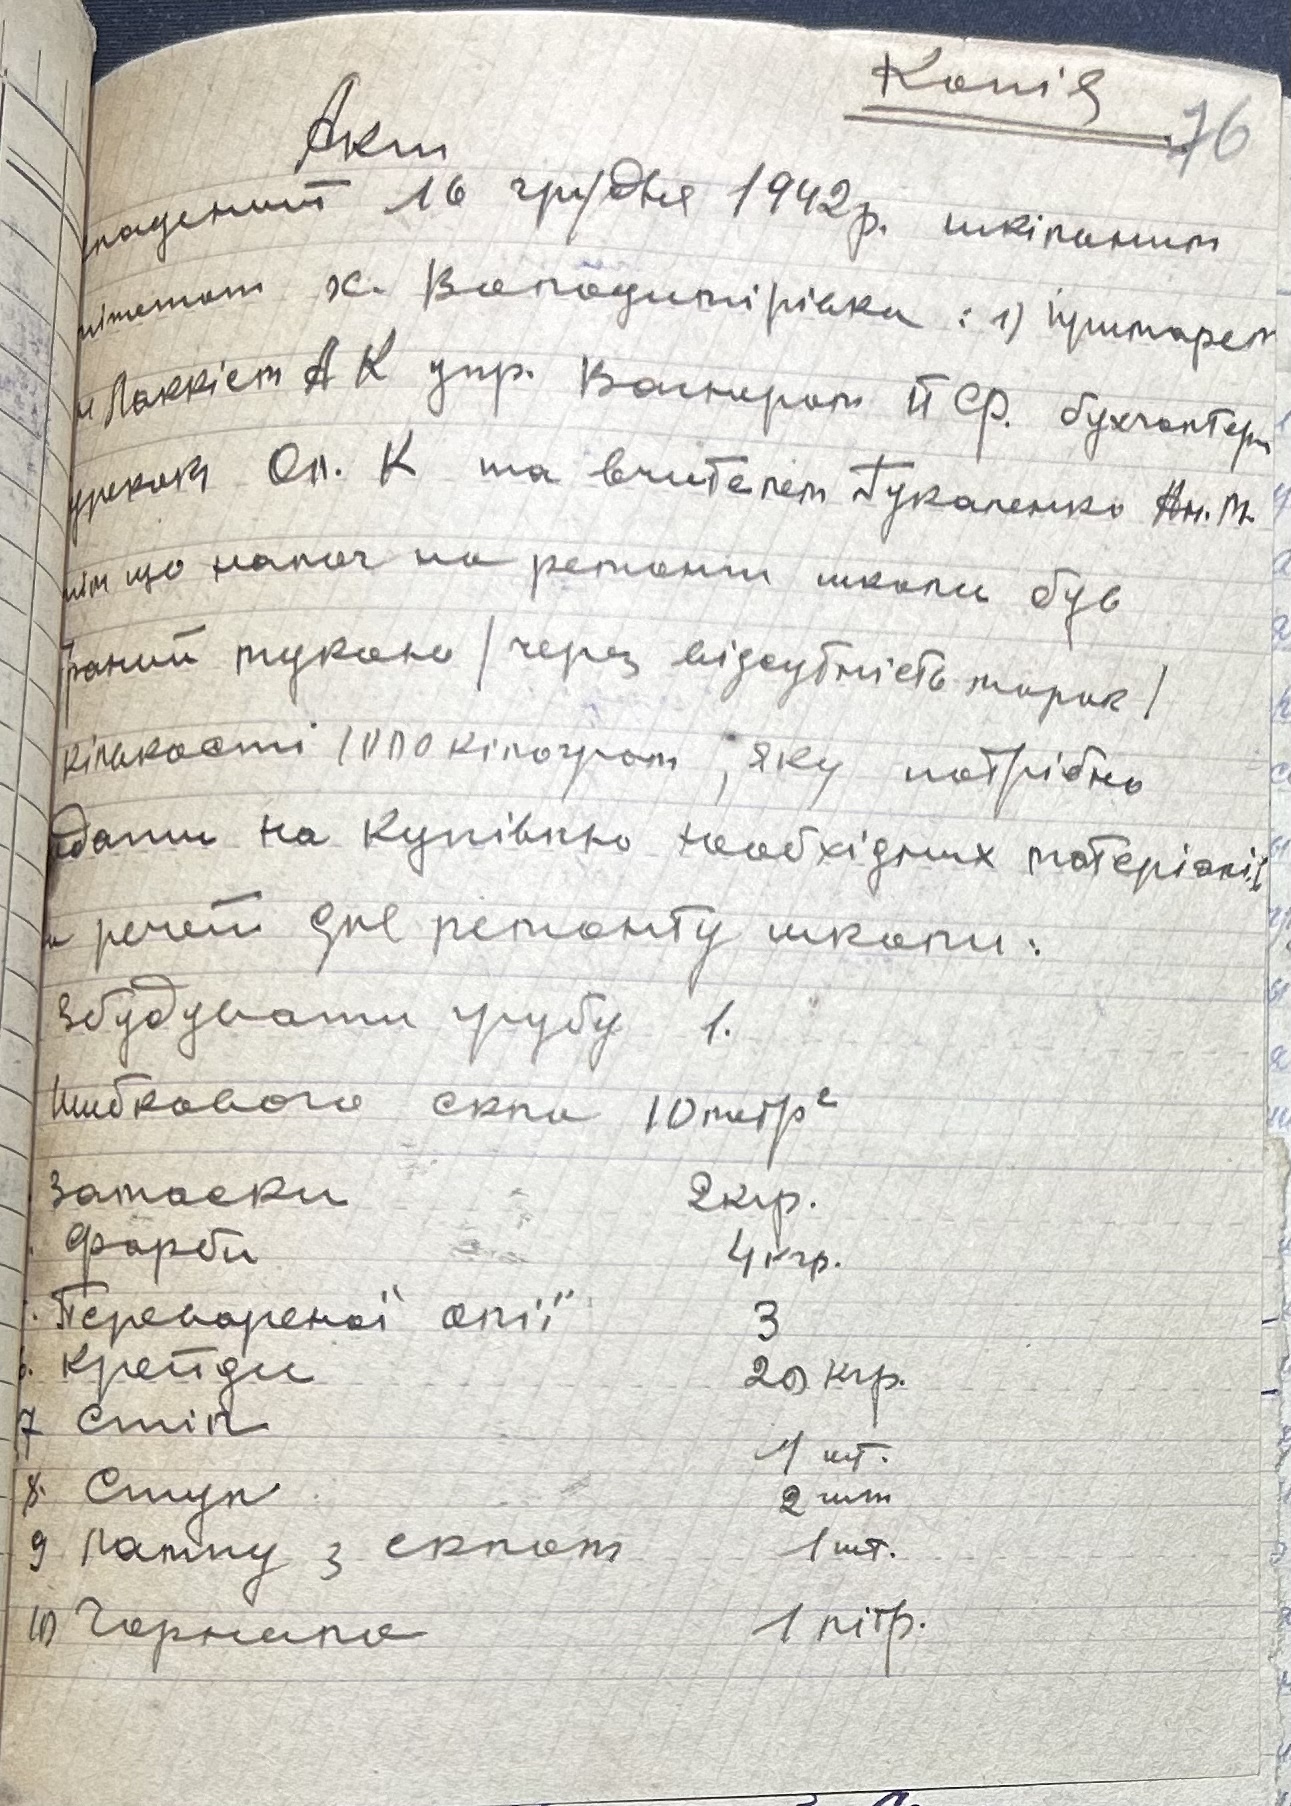 Копія
76
Акт
кладений 16 грудня 1942р. шкільним
мітетом х. Володимирівка : 1)
АК упр. Вагнером Й Ф. бухгалтер
Ол. К та вчителем Гукаленко Ан. М.
тім що налог на ремонт школи був
раний мукою / через відсутність марок /
кількості 1000 кілограм, яку потрібно
дати на купівлю необхідних матеріалів
и речей для ремонту школи:
Збудувати грубу 1.
Шибкового скла 10 метр²
Замаски 2 кгр.
Фарби 4 кгр.
Перевареної олії 3
6. Крейди 20 кгр.
7 Стіл 1 шт.
8. Стул 2 шт
9 Лампу з склом 1 шт.
10 Чорнила 1 літр.